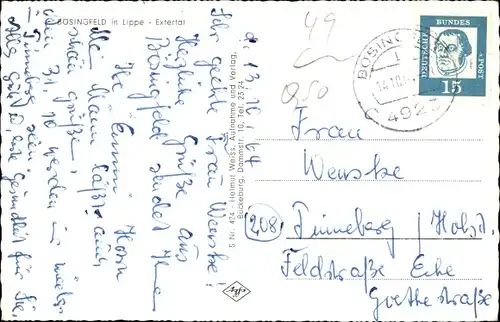 BÖSINGFELD in Lippe - Extertal
d. 13.10.64
Sehr geehrte Frau Wenske!
Herzliche Grüße aus
Bösingfeld sendet Ihnen
Ihr
Mein Mann läßt auch
schön grüßen.
Am 31.10 werden wir wieder
in Pinneberg sein.
Alles Gute u. beste Gesundheit für Sie.
5 Nr. 474 - Helmut Weiss, Aufnahme und Verlag,
Bückeburg, Dammstr. 10, Tel. 23 24
49
BÖSING
14.10.
4923
DEUTSCHE BUNDESPOST
15
Frau
Wenske
(208) Pinneberg / Holst.
Feldstraße Ecke
Goethestraße